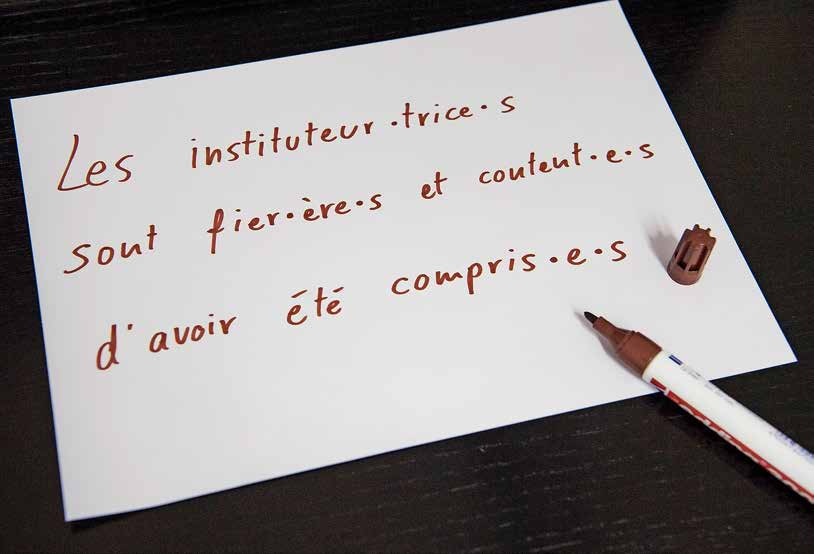 Les instituteur·trice·s
sont fier·ère·s et content·e·s
d'avoir été compris·e·s